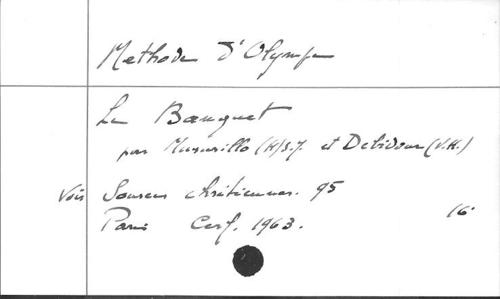 Methode d'Olympe
Le Banquet
par Musurillo (H) S.J. et Debidour (V.H.)
Voir Sources chrétiennes. 95
Paris Cerf. 1963. 16°